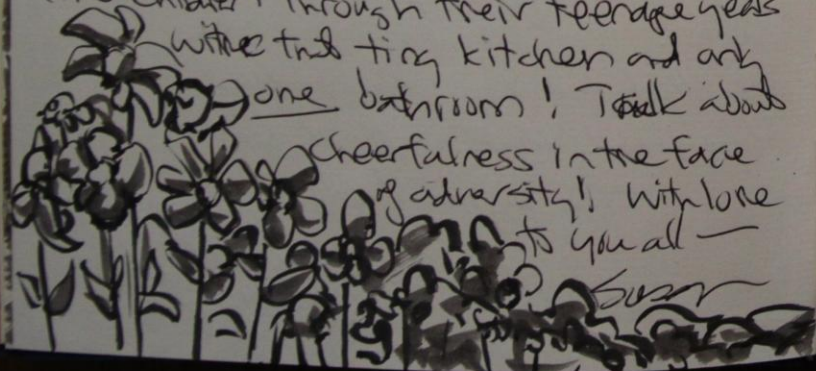 children through their teenage years
with that tiny kitchen and only
one bathroom! Talk about
cheerfulness in the face
of adversity! With love
to you all —
Susan